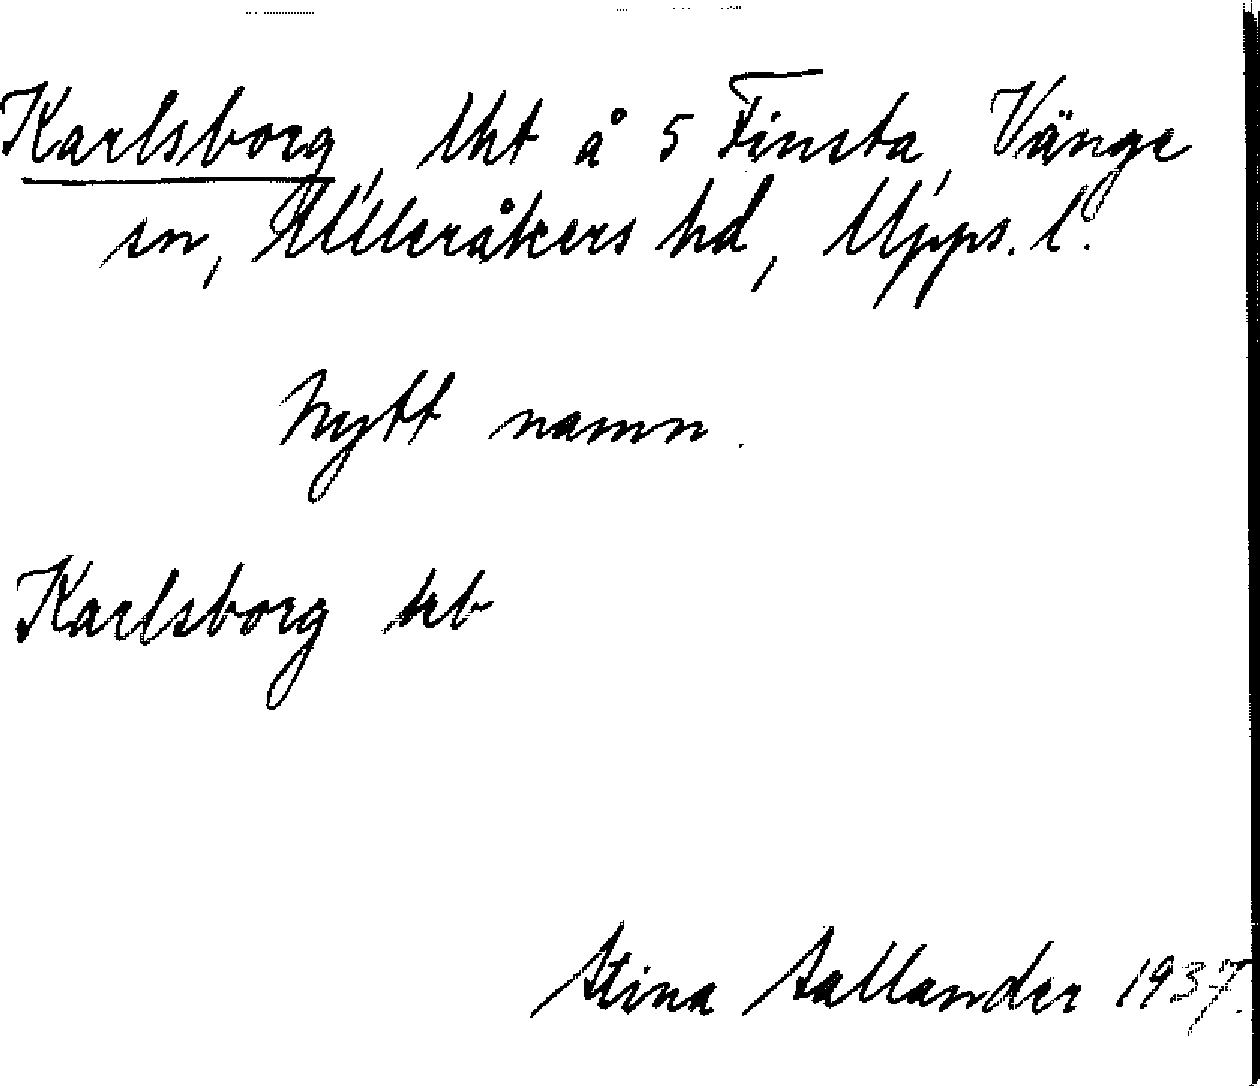 Karlsborg, lht å 5 Finsta, Vänge
sn, Ulleråkers hd, Upps. l.
Nytt namn.
Karlsborg
Stina Sallander 1937.